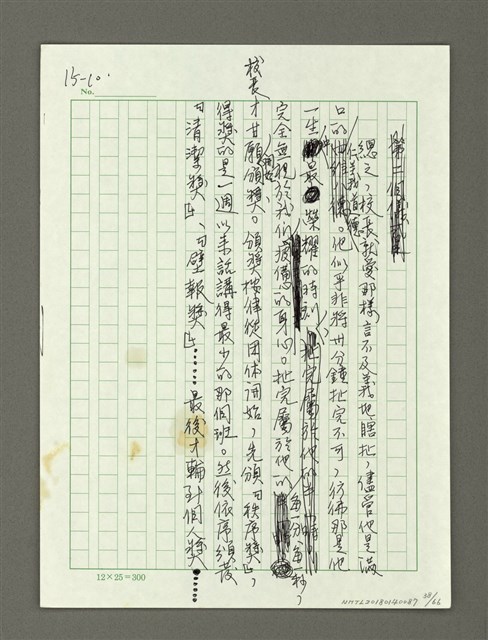 15-10.
No.
總之，校長就愛那樣言不及義地瞎扯，儘管他是滿
口的仁義道德。他似乎非將廿分鐘扯完不可，彷彿那是他
一生最榮耀的時刻，扯完屬於他的每一分每一秒，
完全無視於我們疲憊的身心。扯完屬於他的
校長才甘願頒獎。頒獎按律從團体開始，先頒「秩序獎」，
得獎的是一週以來說話講得最少的那個班。然後依序頒發
「清潔獎」、「壁報獎」……最後才輪到個人獎……
12×25=300
NMTL20180140087 48/66